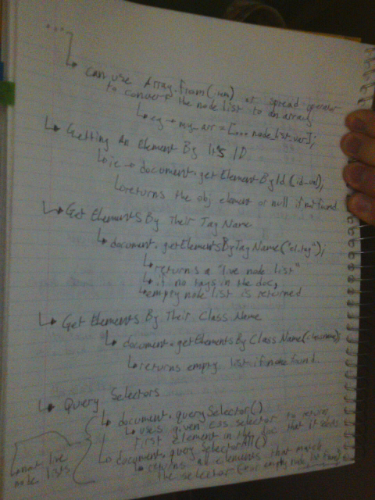 ...
↳ can use Array.from( ) or spread operator
to convert the node list to an array
↳ eg → my_arr = [...node_list_var];
↳ Getting An Element By Its ID
↳ ie → document.getElementById(id_ );
↳ returns the obj element or null if not found
↳ Get Elements By Their Tag Name
↳ document.getElementsByTagName("el.tag");
↳ returns a "live node list"
↳ if no tags in the doc,
↳ empty node list is returned
↳ Get Elements By Their Class Name
↳ document.getElementsByClassName( )
↳ returns empty list if none found
↳ Query Selectors
↳ document.querySelector()
↳ uses given css selector to return
first element in the doc that it
↳ document.querySelectorAll()
↳ returns all elements that match
the selector ( empty node list
↳ not live
node lists